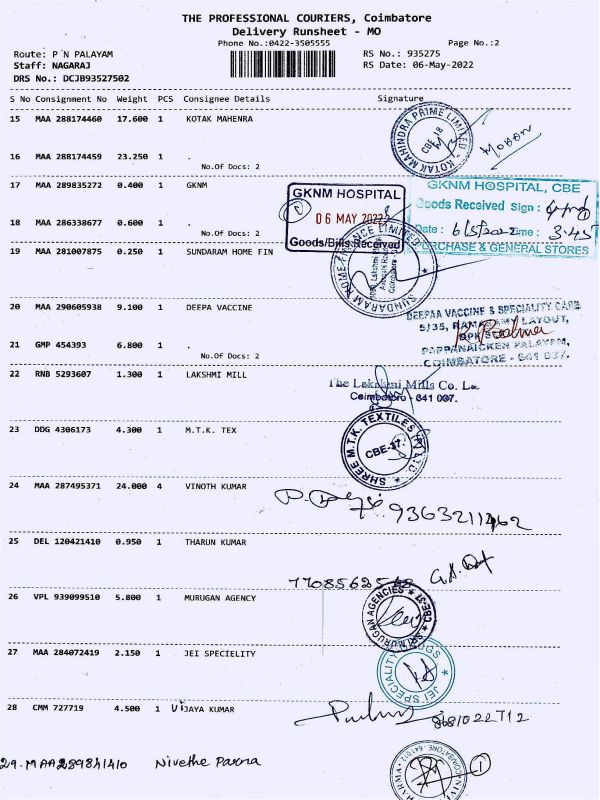 THE PROFESSIONAL COURIERS, Coimbatore
Delivery Runsheet - MO
Phone No.:0422-3505555
Page No.:2
Route: P N PALAYAM
RS No.: 935275
Staff: NAGARAJ
RS Date: 06-May-2022
DRS No.: DCJB93527502
S No Consignment No Weight PCS Consignee Details Signature
15 MAA 288174460 17.600 1 KOTAK MAHENRA
KOTAK MAHINDRA PRIME LIMITED
CBE-18
16 MAA 288174459 23.250 1 .
No.Of Docs: 2
17 MAA 289835272 0.400 1 GKNM
GKNM HOSPITAL
06 MAY 2022
Goods/Bills Received
GKNM HOSPITAL, CBE
Goods Received Sign :
Date : 6/5/2022 Time : 3.45
PURCHASE & GENERAL STORES
18 MAA 286338677 0.600 1 .
No.Of Docs: 2
19 MAA 281007875 0.250 1 SUNDARAM HOME FIN
SUNDARAM HOME FINANCE LIMITED
20 MAA 290605938 9.100 1 DEEPA VACCINE
DEEPAA VACCINE & SPECIALITY CARE
5/35, RAMASAMY LAYOUT,
PAPPANAICKEN PALAYAM,
COIMBATORE - 641 037.
21 GMP 454393 6.800 1 .
No.Of Docs: 2
22 RNB 5293607 1.300 1 LAKSHMI MILL
The Lakshmi Mills Co. L
Coimbatore - 641 037.
23 DDG 4306173 4.300 1 M.T.K. TEX
SHREE M.T.K. TEXTILES
CBE-37.
24 MAA 287495371 24.000 4 VINOTH KUMAR
25 DEL 120421410 0.950 1 THARUN KUMAR
26 VPL 939099510 5.800 1 MURUGAN AGENCY
SRI MURUGAN AGENCIES
CBE-37
27 MAA 284072419 2.150 1 JEI SPECIELITY
JEI SPECIALITY DRUGS
28 CMM 727719 4.500 1 ViJAYA KUMAR
29. MAA289841410 Nivethe Parna